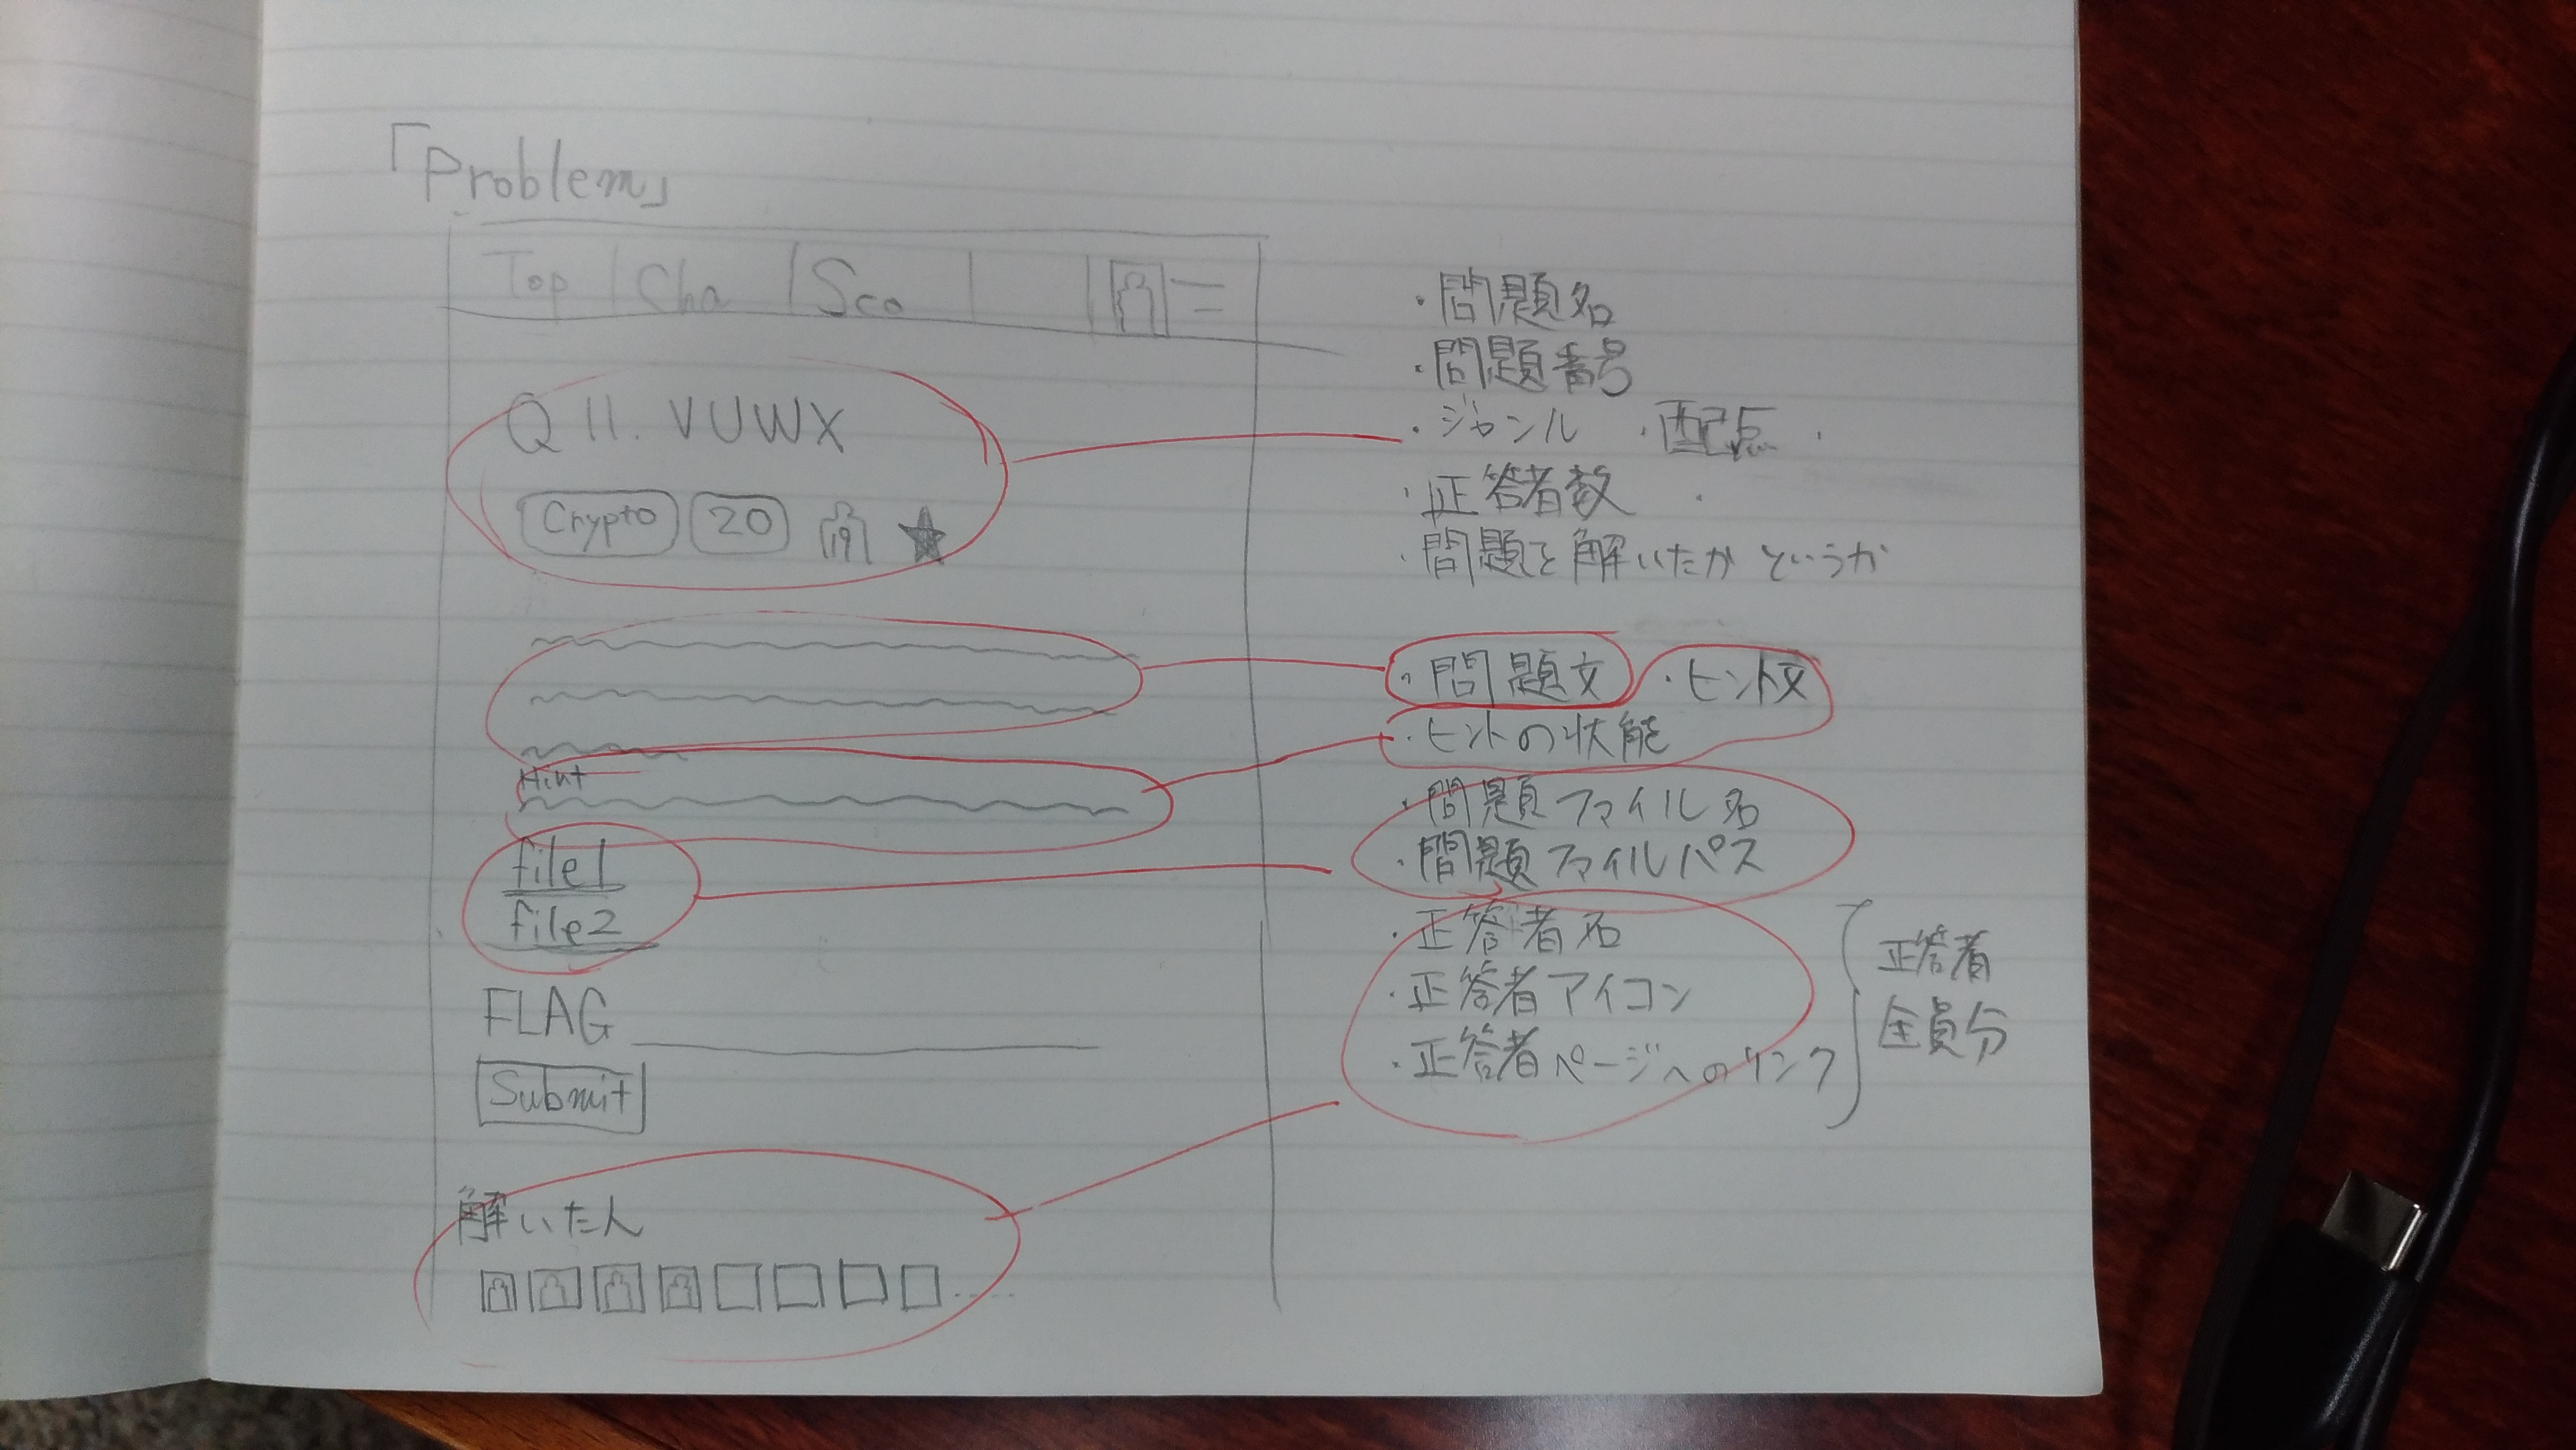 「Problem」
Top Cha Sco
Q11. VUWX
Crypto 20 19
Hint
file1
file2
FLAG
Submit
解いた人
・問題名
・問題番号
・ジャンル ・配点
・正答者数
・問題を解いたかというか
・問題文 ・ヒント文
・ヒントの状態
・問題ファイル名
・問題ファイルパス
・正答者名
・正答者アイコン
・正答者ページへのリンク
正答者
全員分